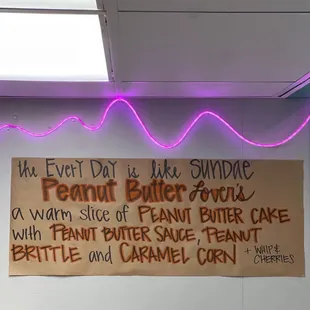 the EVERY DAY is like SUNDAE
Peanut Butter Lovers
a warm slice of PEANUT BUTTER CAKE
with PEANUT BUTTER SAUCE, PEANUT
BRITTLE and CARAMEL CORN + WHIP &
CHERRIES